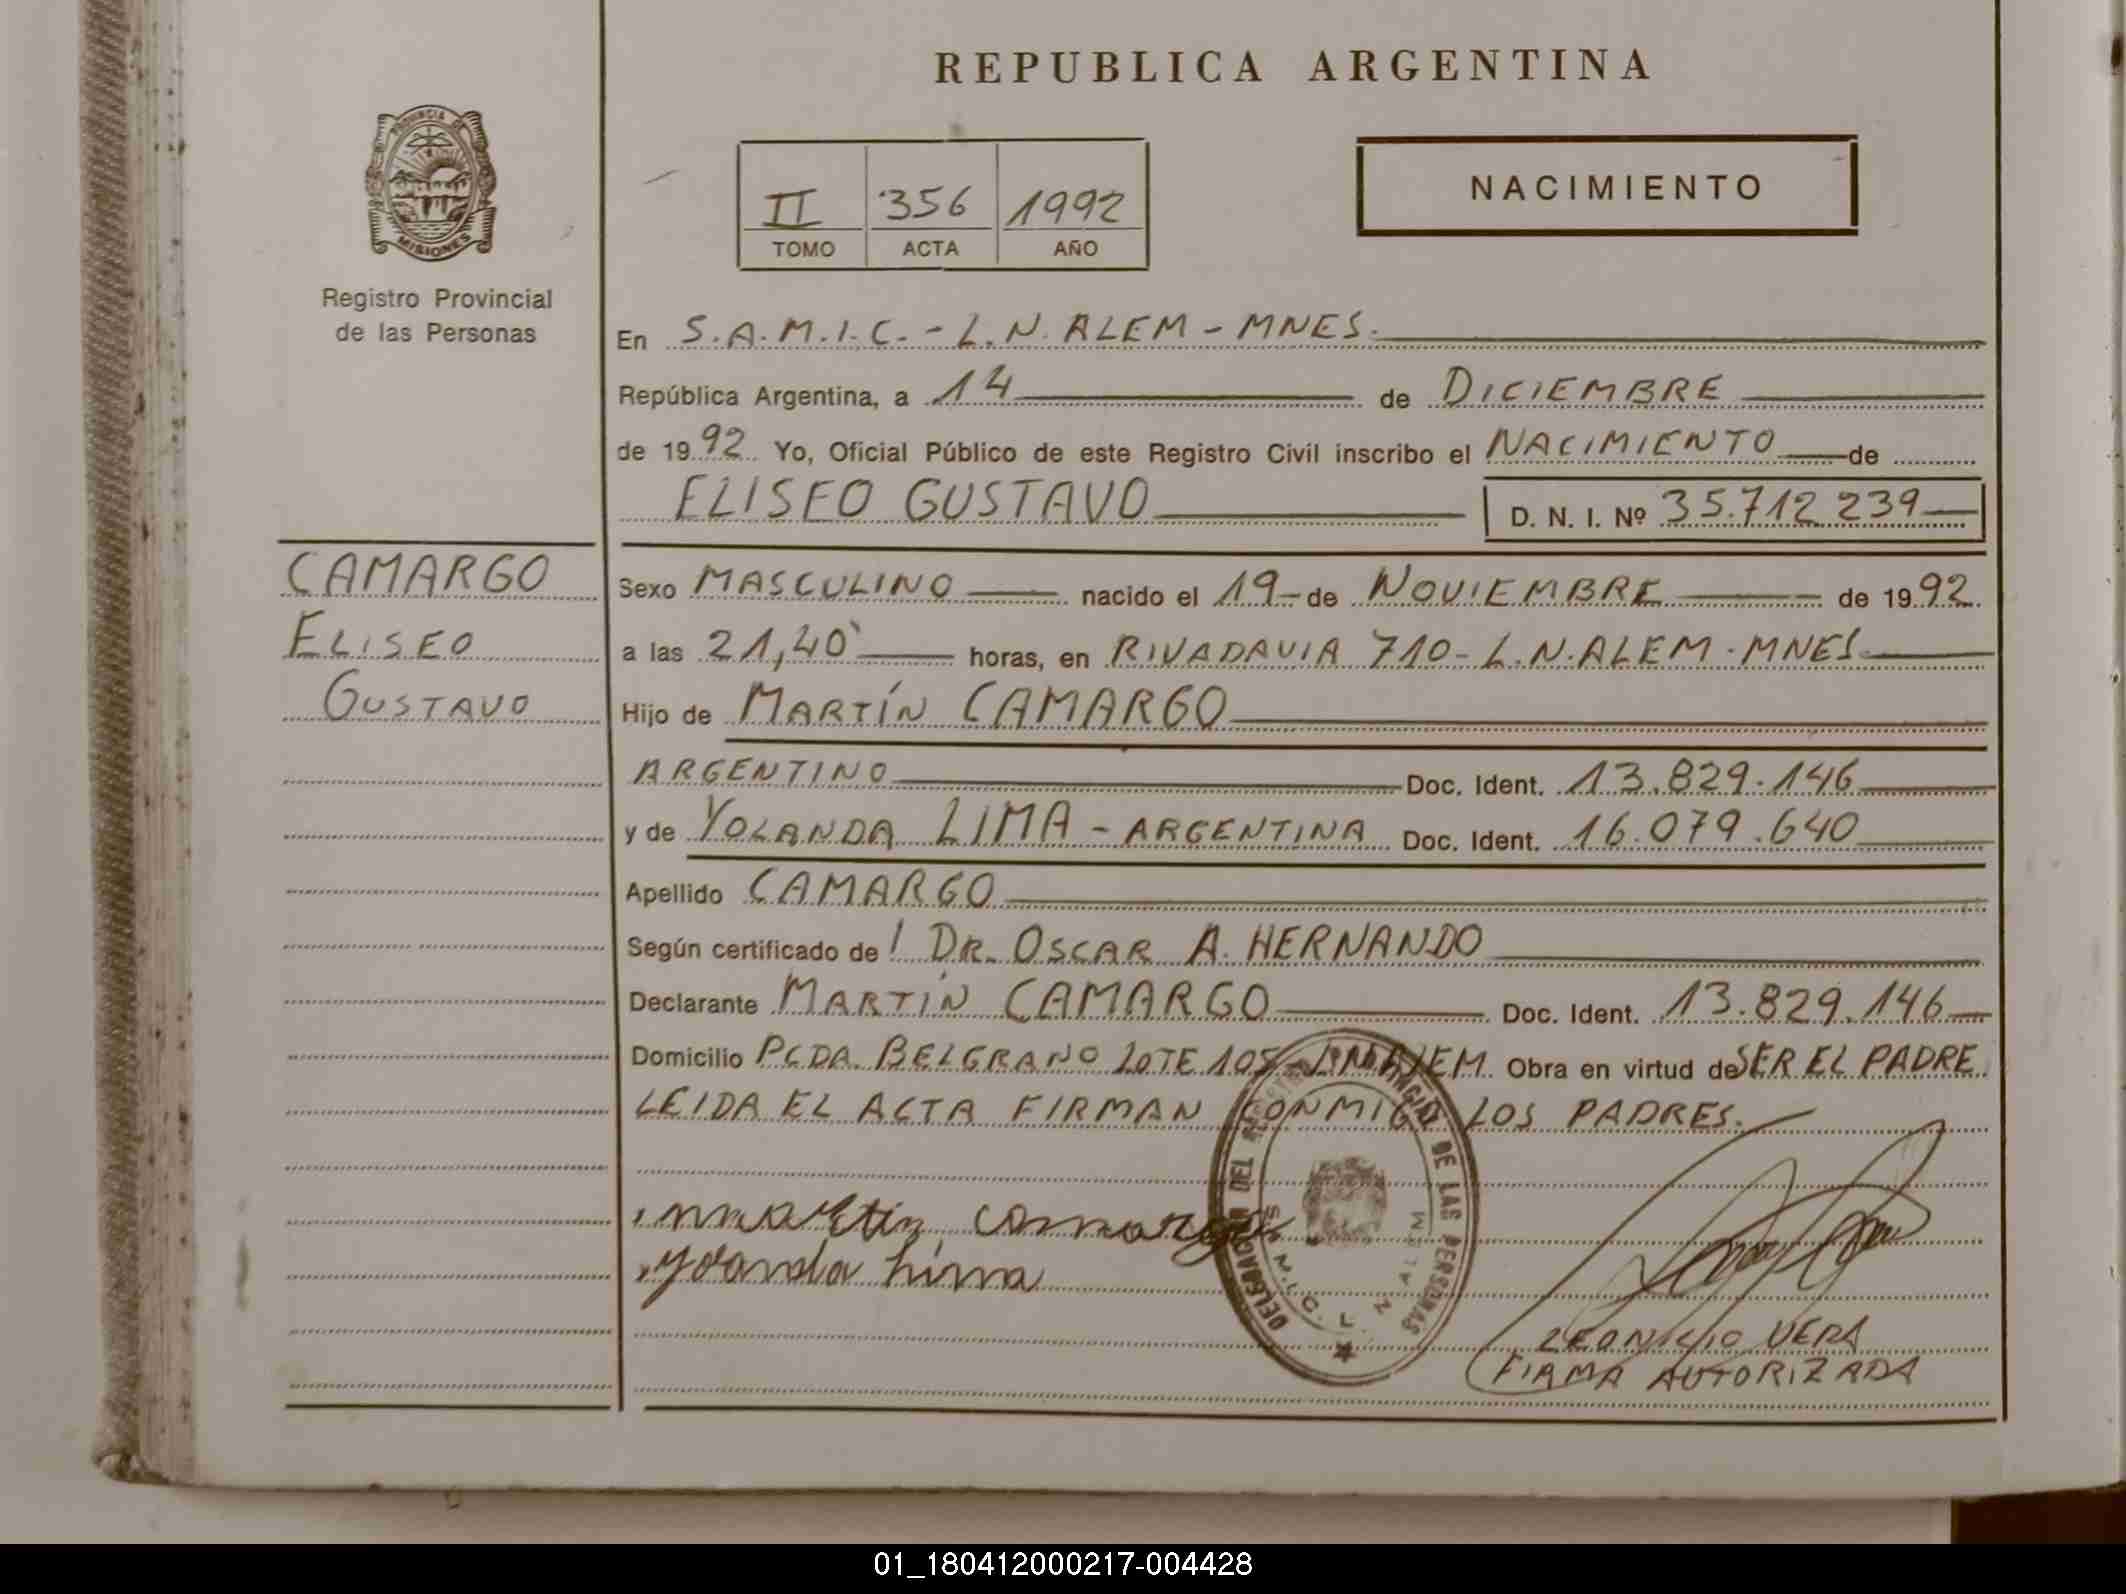 REPUBLICA ARGENTINA
PROVINCIA DE MISIONES
Registro Provincial
de las Personas
II 356 1992
TOMO ACTA AÑO
NACIMIENTO
En S.A.M.I.C. - L.N. ALEM - MNES.
República Argentina, a 14 de DICIEMBRE
de 1992 Yo, Oficial Público de este Registro Civil inscribo el NACIMIENTO de
ELISEO GUSTAVO D. N. I. Nº 35.712.239
CAMARGO
ELISEO
GUSTAVO
Sexo MASCULINO nacido el 19 de NOVIEMBRE de 1992
a las 21,40 horas, en RIVADAVIA 710 - L.N. ALEM - MNES.
Hijo de MARTÍN CAMARGO
ARGENTINO Doc. Ident. 13.829.146
y de YOLANDA LIMA - ARGENTINA Doc. Ident. 16.079.640
Apellido CAMARGO
Según certificado de DR. OSCAR A. HERNANDO
Declarante MARTÍN CAMARGO Doc. Ident. 13.829.146
Domicilio PCDA. BELGRANO LOTE 105 L.N. ALEM Obra en virtud de SER EL PADRE
LEIDA EL ACTA FIRMAN CONMIGO LOS PADRES.
martin camargo
yolanda lima
DELEGACION DEL REGISTRO PROVINCIAL DE LAS PERSONAS
L. N. ALEM
LEONICIO VERA
FIRMA AUTORIZADA
01_180412000217-004428